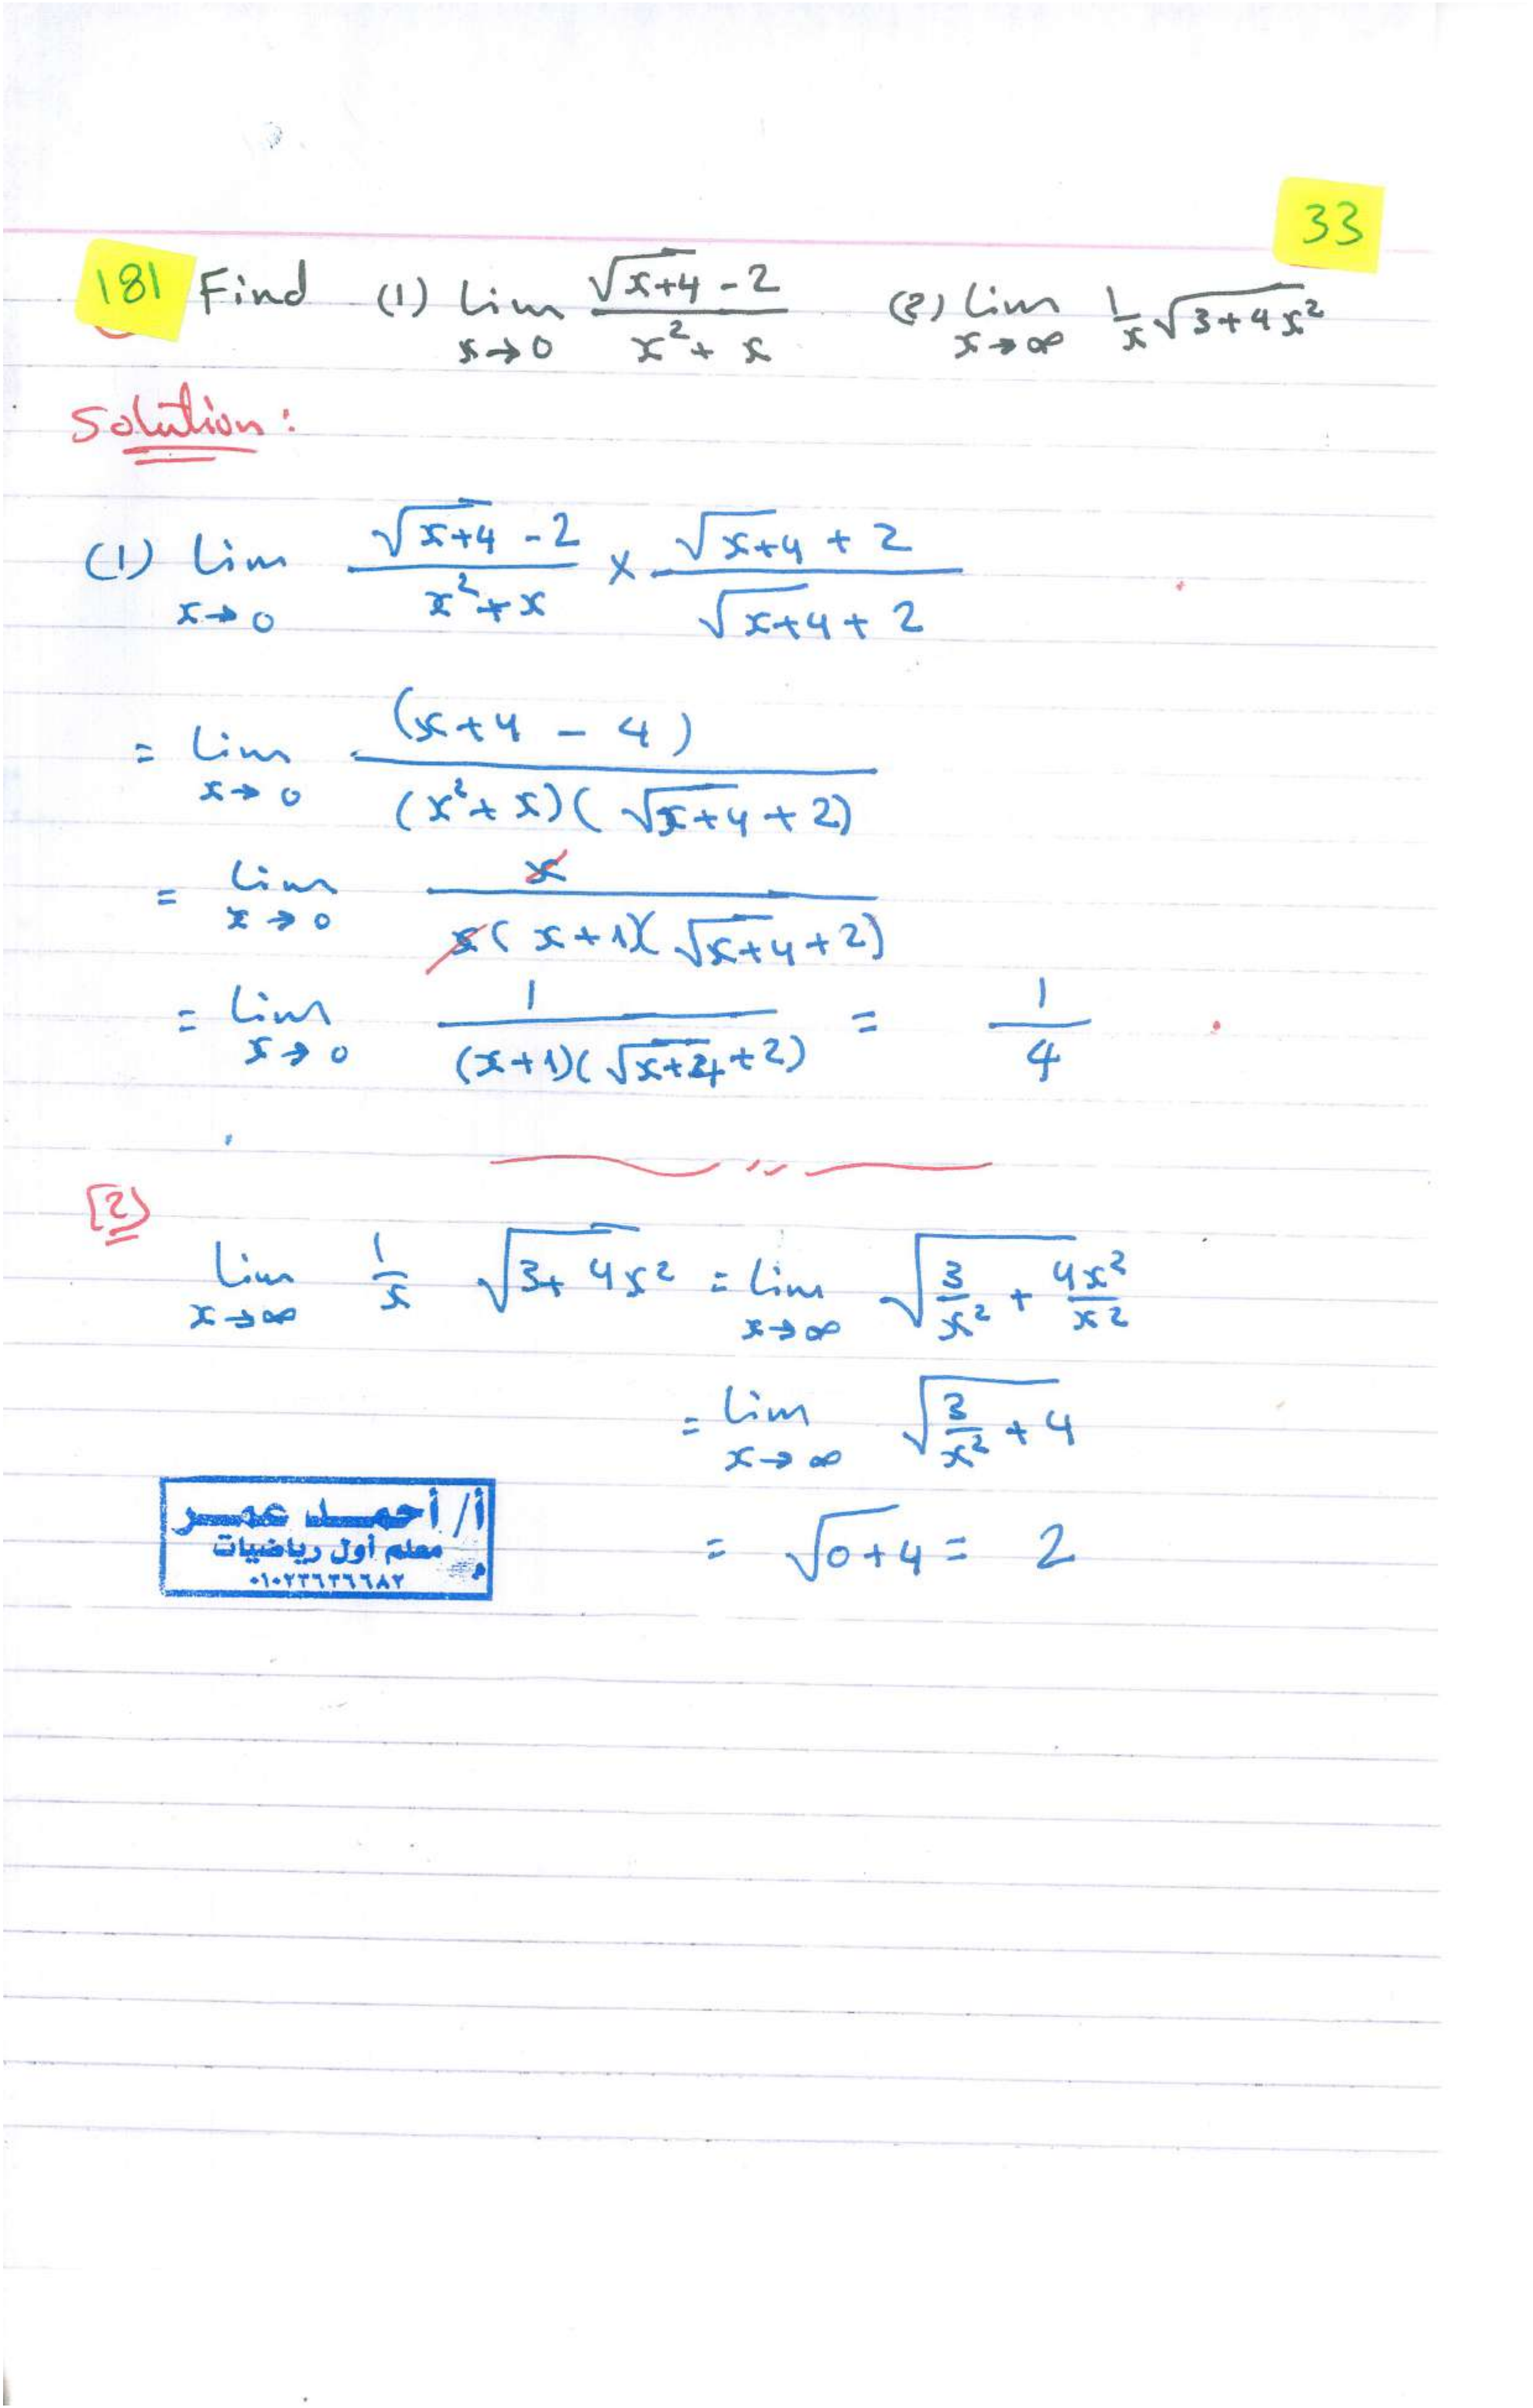 33
181 Find (1) lim x→0 (√(x+4) - 2)/(x² + x) (2) lim x→∞ 1/x √(3+4x²)
Solution:
(1) lim x→0 (√(x+4) - 2)/(x² + x) × (√(x+4) + 2)/(√(x+4) + 2)
= lim x→0 (x+4 - 4)/((x² + x)(√(x+4) + 2))
= lim x→0 x/(x(x+1)(√(x+4) + 2))
= lim x→0 1/((x+1)(√(x+4) + 2)) = 1/4
[2]
lim x→∞ 1/x √(3+4x²) = lim x→∞ √(3/x² + 4x²/x²)
= lim x→∞ √(3/x² + 4)
= √(0+4) = 2
أ/ أحمد عمر
معلم أول رياضيات
٠١٠٢٢٦٣٦٦٨٢